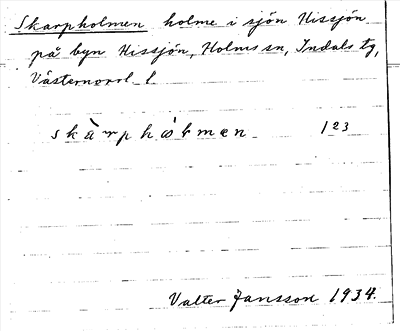 Skarpholmen holme i sjön Hissjön
på byn Hissjön, Holms sn, Indals tg,
Västernorrl. l.
skàrphòlmen 123
Valter Jansson 1934.